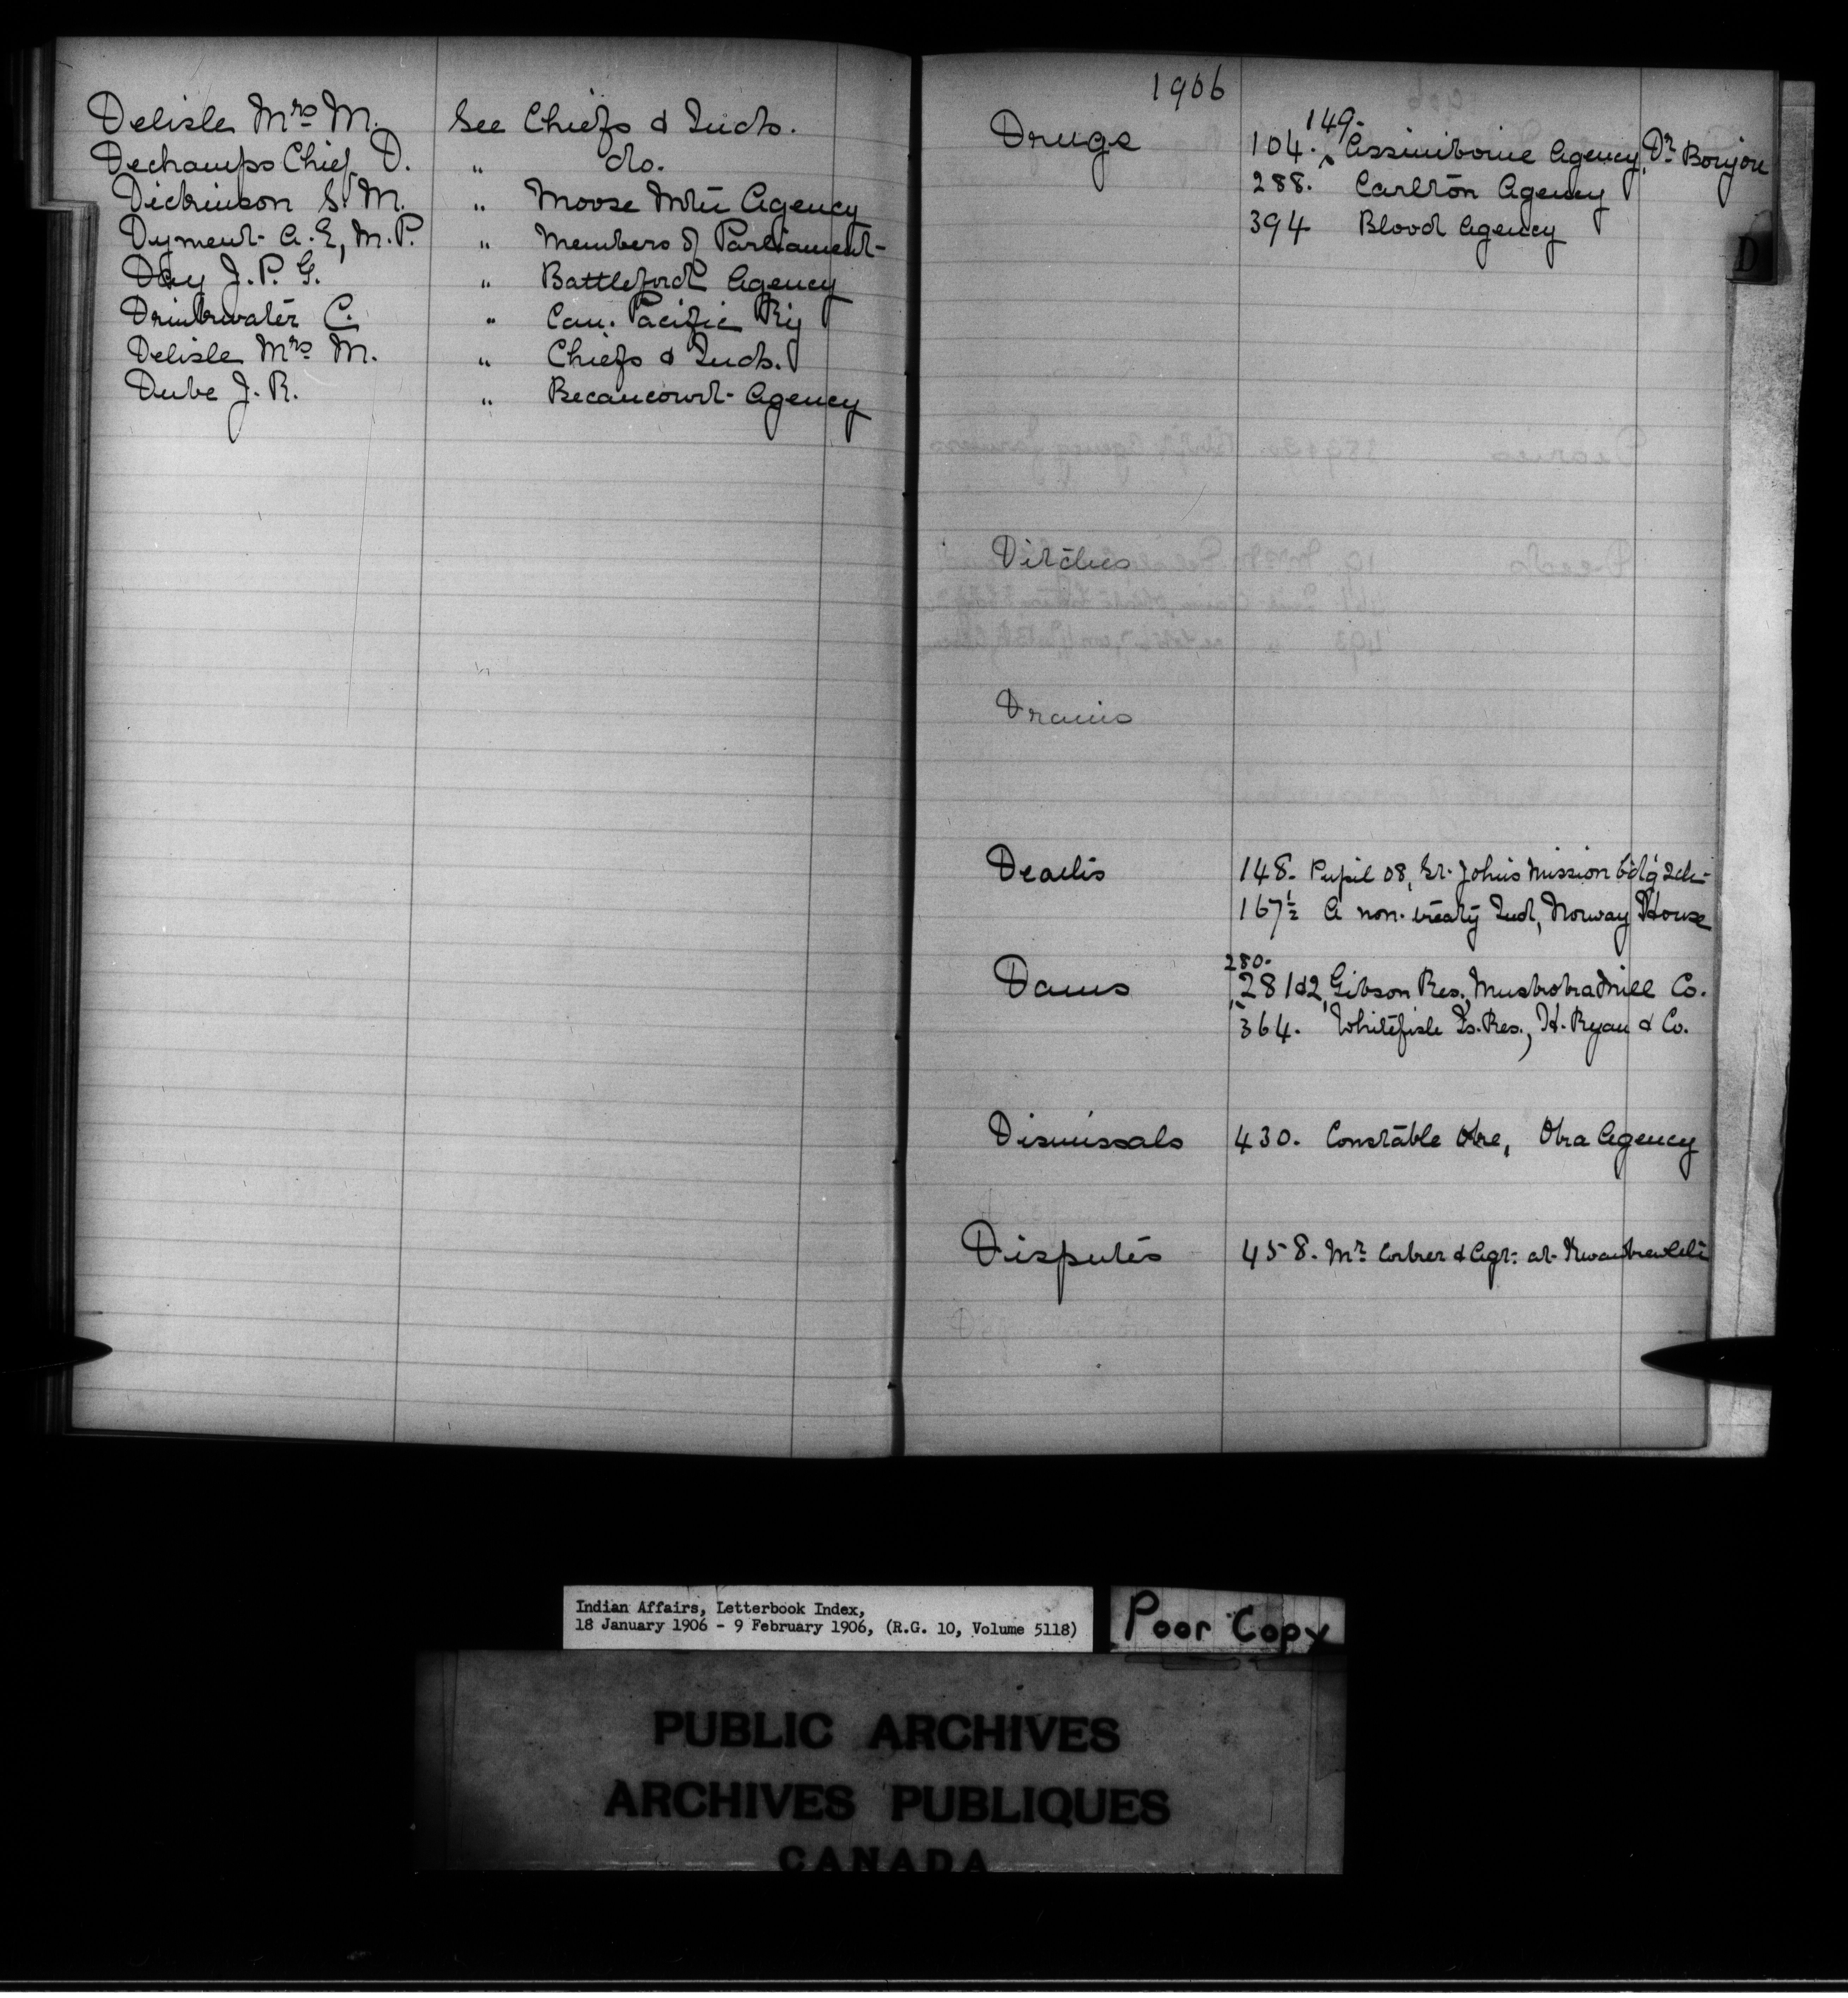 Delisle Mrs M. See Chiefs & Inds.
Dechamps Chief D. " do.
Dickinson S. M. " Moose Mtn Agency
Dyment A. E, M.P. " Members of Parliament
Day J. P. G. " Battleford Agency
Drinkwater C. " Can. Pacific Ry
Delisle Mrs M. " Chiefs & Inds.
Dube J. R. " Becancourt Agency
1906
149.
Drugs 104. Assiniboine Agency, Dr
288. Carlton Agency
394 Blood Agency
D
Ditches
Drains
Deaths 148. Pupil 08, St. Johns Mission bdg Sch
167½ A non-treaty Ind, Norway House
280.
Dams 281&2, Gibson Res., Muskoka Mill Co.
364. Whitefish Is. Res., H. Ryan & Co.
Dismissals 430. Constable Oke, Oka Agency
Disputes 458. Mr & Agt. at
Indian Affairs, Letterbook Index,
18 January 1906 - 9 February 1906, (R.G. 10, Volume 5118)
Poor Copy
PUBLIC ARCHIVES
ARCHIVES PUBLIQUES
CANADA